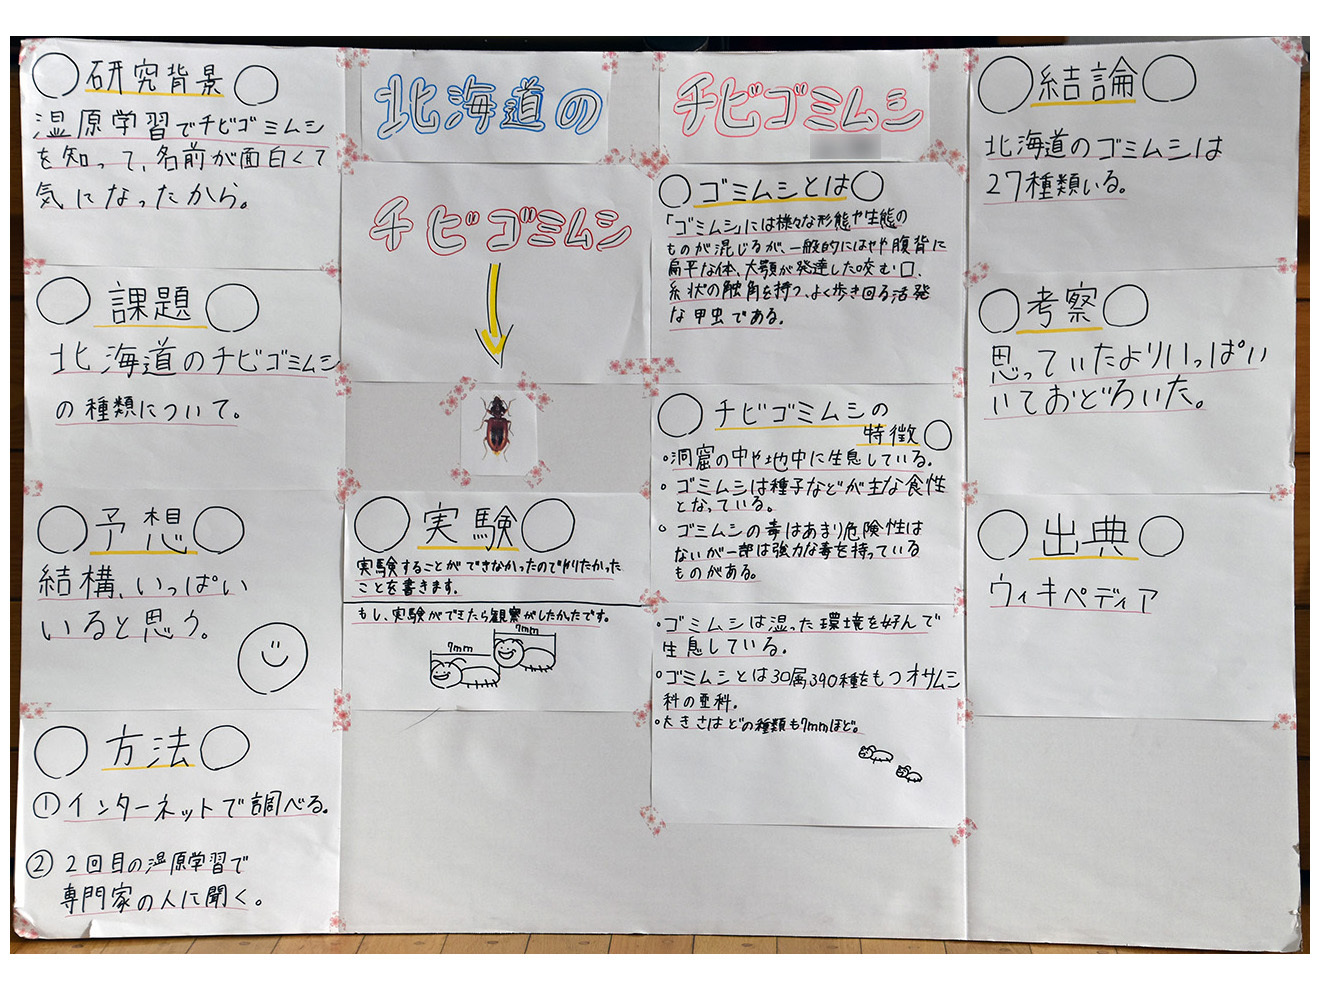 北海道の
チビゴミムシ
研究背景
湿原学習でチビゴミムシ
を知って、名前が面白くて
気になったから。
課題
北海道のチビゴミムシ
の種類について。
予想
結構、いっぱい
いると思う。
方法
①インターネットで調べる。
②2回目の湿原学習で
専門家の人に聞く。
チビゴミムシ
実験
実験することができなかったのでやりたかった
ことを書きます。
もし、実験ができたら観察がしたかったです。
7mm
7mm
ゴミムシとは
「ゴミムシ」には様々な形態や生態の
ものが混じるが、一般的にはやや腹背に
扁平な体、大顎が発達した咬む口、
糸状の触角を持つ、よく歩き回る活発
な甲虫である。
チビゴミムシの
特徴
・洞窟の中や地中に生息している。
・ゴミムシは種子などが主な食性
となっている。
・ゴミムシの毒はあまり危険性は
ないが一部は強力な毒を持っている
ものがある。
・ゴミムシは湿った環境を好んで
生息している。
・ゴミムシとは30属390種をもつオサムシ
科の亜科。
・大きさはどの種類も7mmほど。
結論
北海道のゴミムシは
27種類いる。
考察
思っていたよりいっぱい
いておどろいた。
出典
ウィキペディア